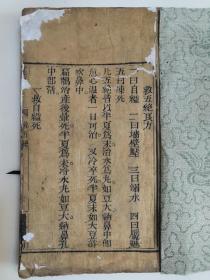 救五絕良方
一曰自縊 二曰墻壁壓 三曰溺水 四曰魘魅
五曰凍死
凡五絕皆以半夏爲末冷水丸如豆大納鼻中
愈心溫者一日可治 又冷卒死半夏末如大豆許
吹鼻中
扁鵲治產後暈死半夏爲末冷水丸如豆大納鼻孔
中卽活
一救自縊死